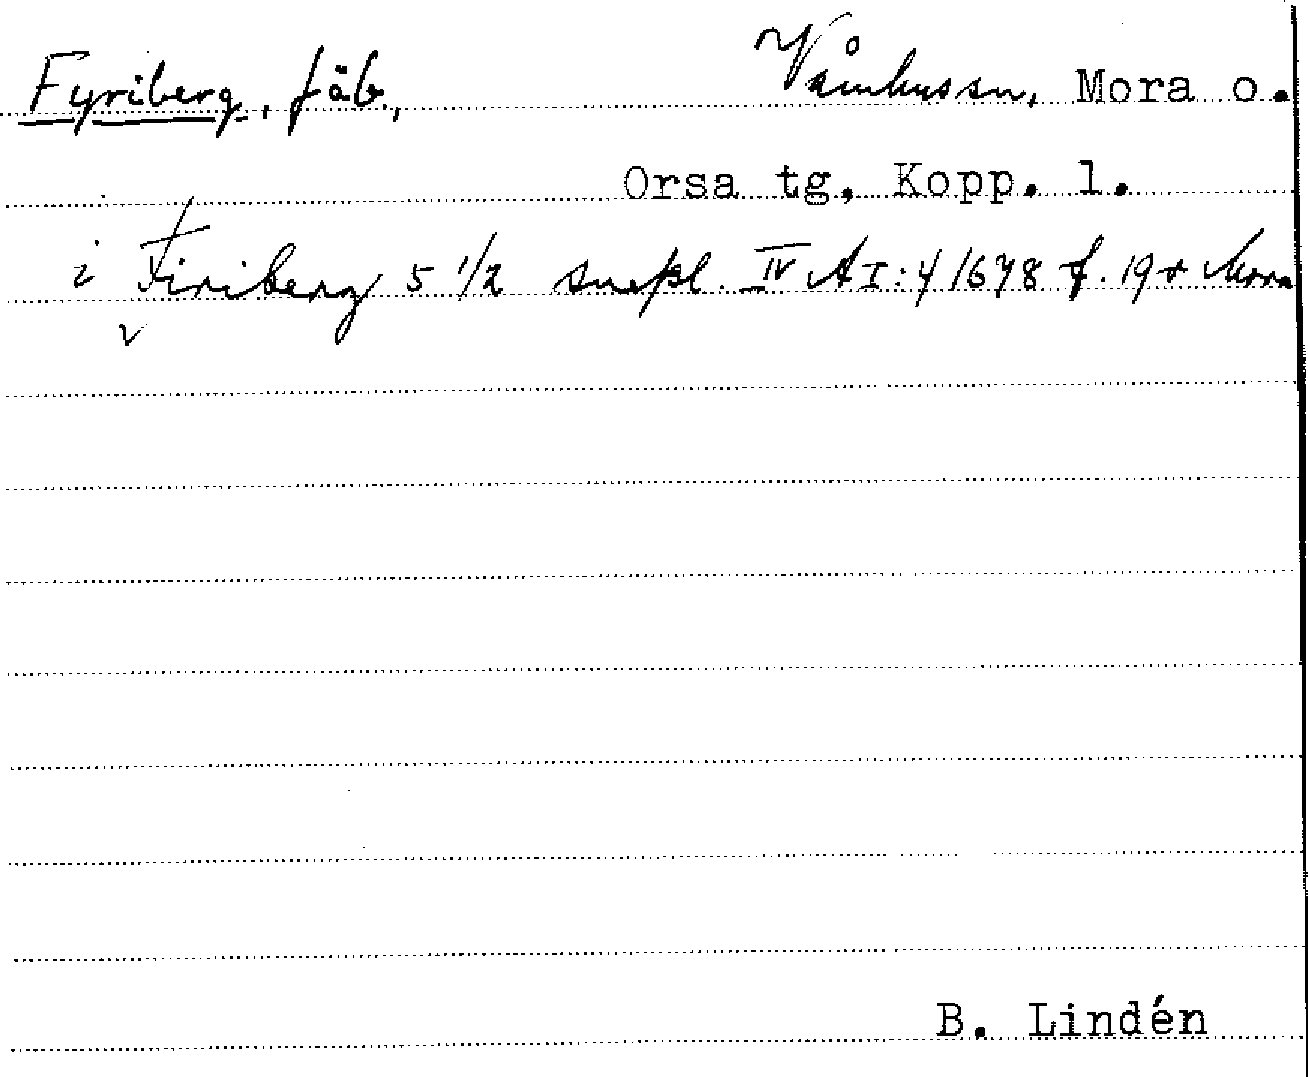 Fyriberg, fäb., Våmhus sn, Mora o.
Orsa tg, Kopp. l.
i Firiberg 5 1/2 snpl. IV A I:4 1678 f. 19 r Mora
v
B. Lindén